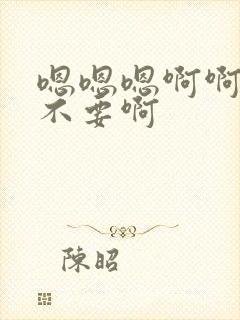 嗯嗯嗯啊啊
不要啊
陳昭